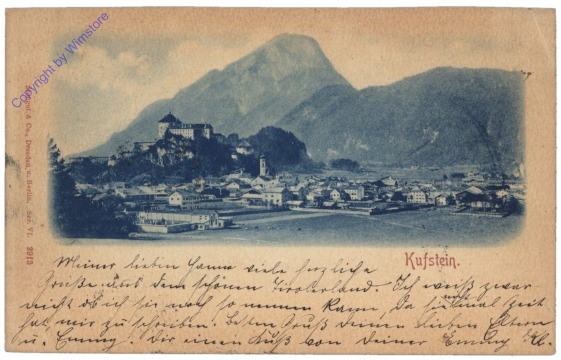 Copyright by Wimstore
& Co., Dresden u. Berlin. Ser. VI. 2913
Kufstein.
Meiner lieben Hanna viele herzliche
Grüße aus dem schönen Tirolerland. Ich weiß zwar
nicht ob ich sie noch so nennen kann, da sie mal Zeit
hat, mir zu schreiben. Besten Gruß deinen lieben Eltern
u. Emmy! Dir einen Kuß von Deiner Emmy